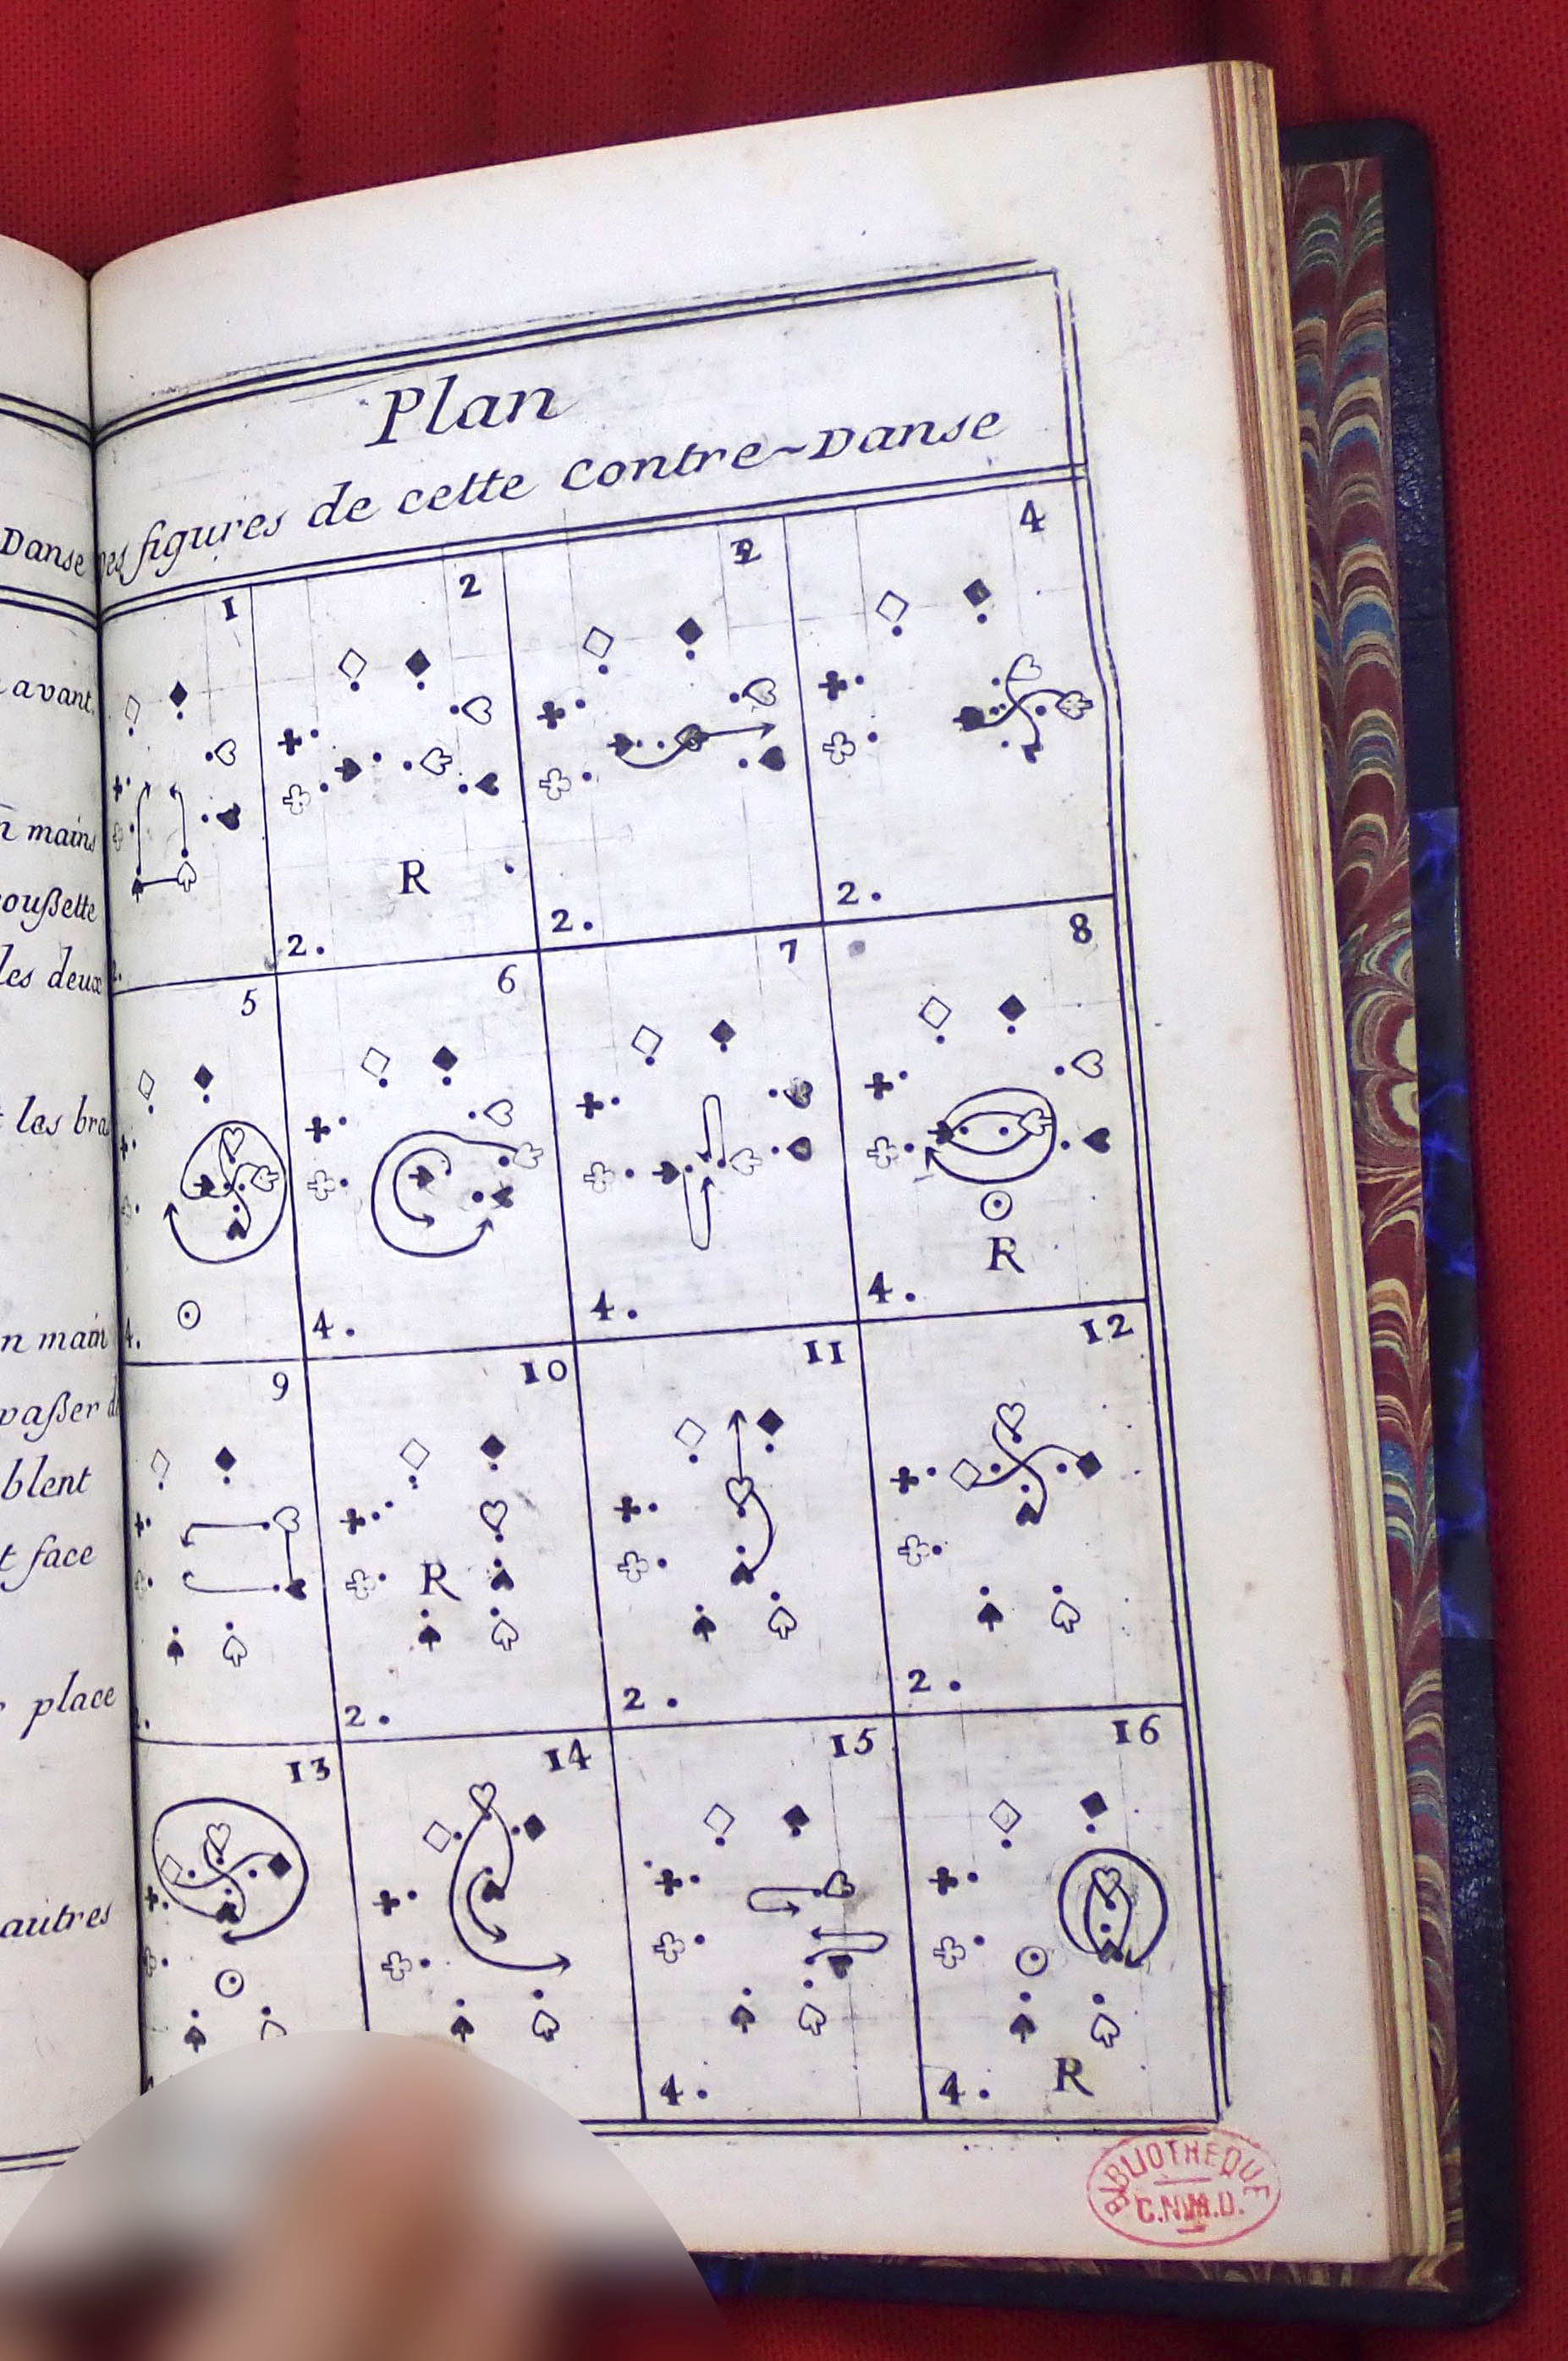 Plan
des figures de cette Contre-Danse
Danse
avant.
n mains
oußette
les deux
t les bra
n main
paßer d
blent
t face
place
autres
1
2
4
2.
R
2.
2.
5
6
7
8
4.
4.
4.
4.
R
9
10
11
12
R
2.
2.
2.
13
14
15
16
4.
4.
R
BIBLIOTHEQUE
C.N.M.D.